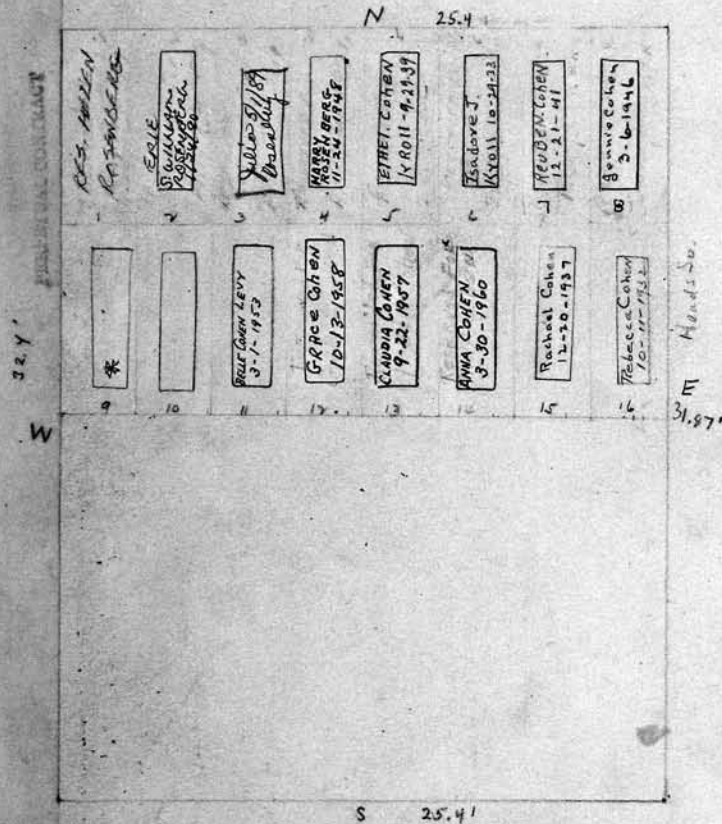 N 25.4
PERPETUAL CONTRACT
RES. ROSENBERG
ERIE
ROSENBERG
Julia 5/1/89
Rosenberg
HARRY
ROSENBERG
11-24-1948
ETHEL COHEN
KROLL-9-29-39
Isadore J.
Kroll 10-29-33
REUBEN COHEN
12-21-41
Bonnie Cohen
3-6-1946
1 2 3 4 5 6 7 8
Heads So.
32.4'
*
BELLE COHEN LEVY
3-1-1953
GRACE COHEN
10-13-1958
CLAUDIA COHEN
9-22-1957
ANNA COHEN
3-30-1960
Rachael Cohen
12-20-1937
Rebecca Cohen
10-11-1932
9 10 11 12 13 14 15 16
W
E
31.87'
S 25.41